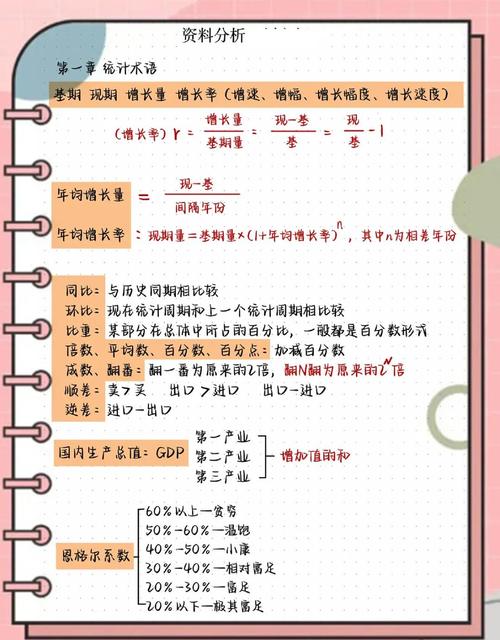 资料分析
第一章 统计术语
基期 现期 增长量 增长率(增速、增幅、增长幅度、增长速度)
(增长率) r = 增长量/基期量 = 现-基/基 = 现/基 -1
年均增长量 = 现-基/间隔年份
年均增长率: 现期量=基期量×(1+年均增长率)^n, 其中n为相差年份
同比: 与历史同期相比较
环比: 现在统计周期和上一个统计周期相比较
比重: 某部分在总体中所占的百分比, 一般都是百分数形式
倍数、平均数、百分数、百分点: 加减百分数
成数、翻番: 翻一番为原来的2倍, 翻N翻为原来的2^N倍
顺差: 卖>买 出口>进口 出口-进口
逆差: 进口-出口
国内生产总值: GDP
第一产业
第二产业
第三产业
增加值的和
恩格尔系数
60%以上-贫穷
50%-60%-温饱
40%-50%-小康
30%-40%-相对富足
20%-30%-富足
20%以下-极其富足